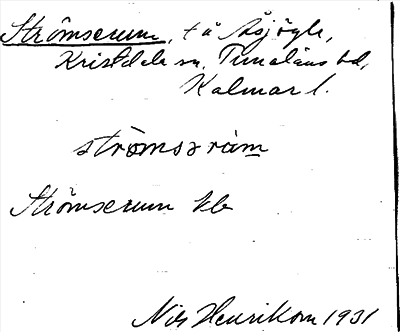 Strömserum, t å Åsjögle,
Kristdala sn, Tunaläns hd,
Kalmar l.
strömsəràm
Strömserum kb
Nils Henrikson 1931